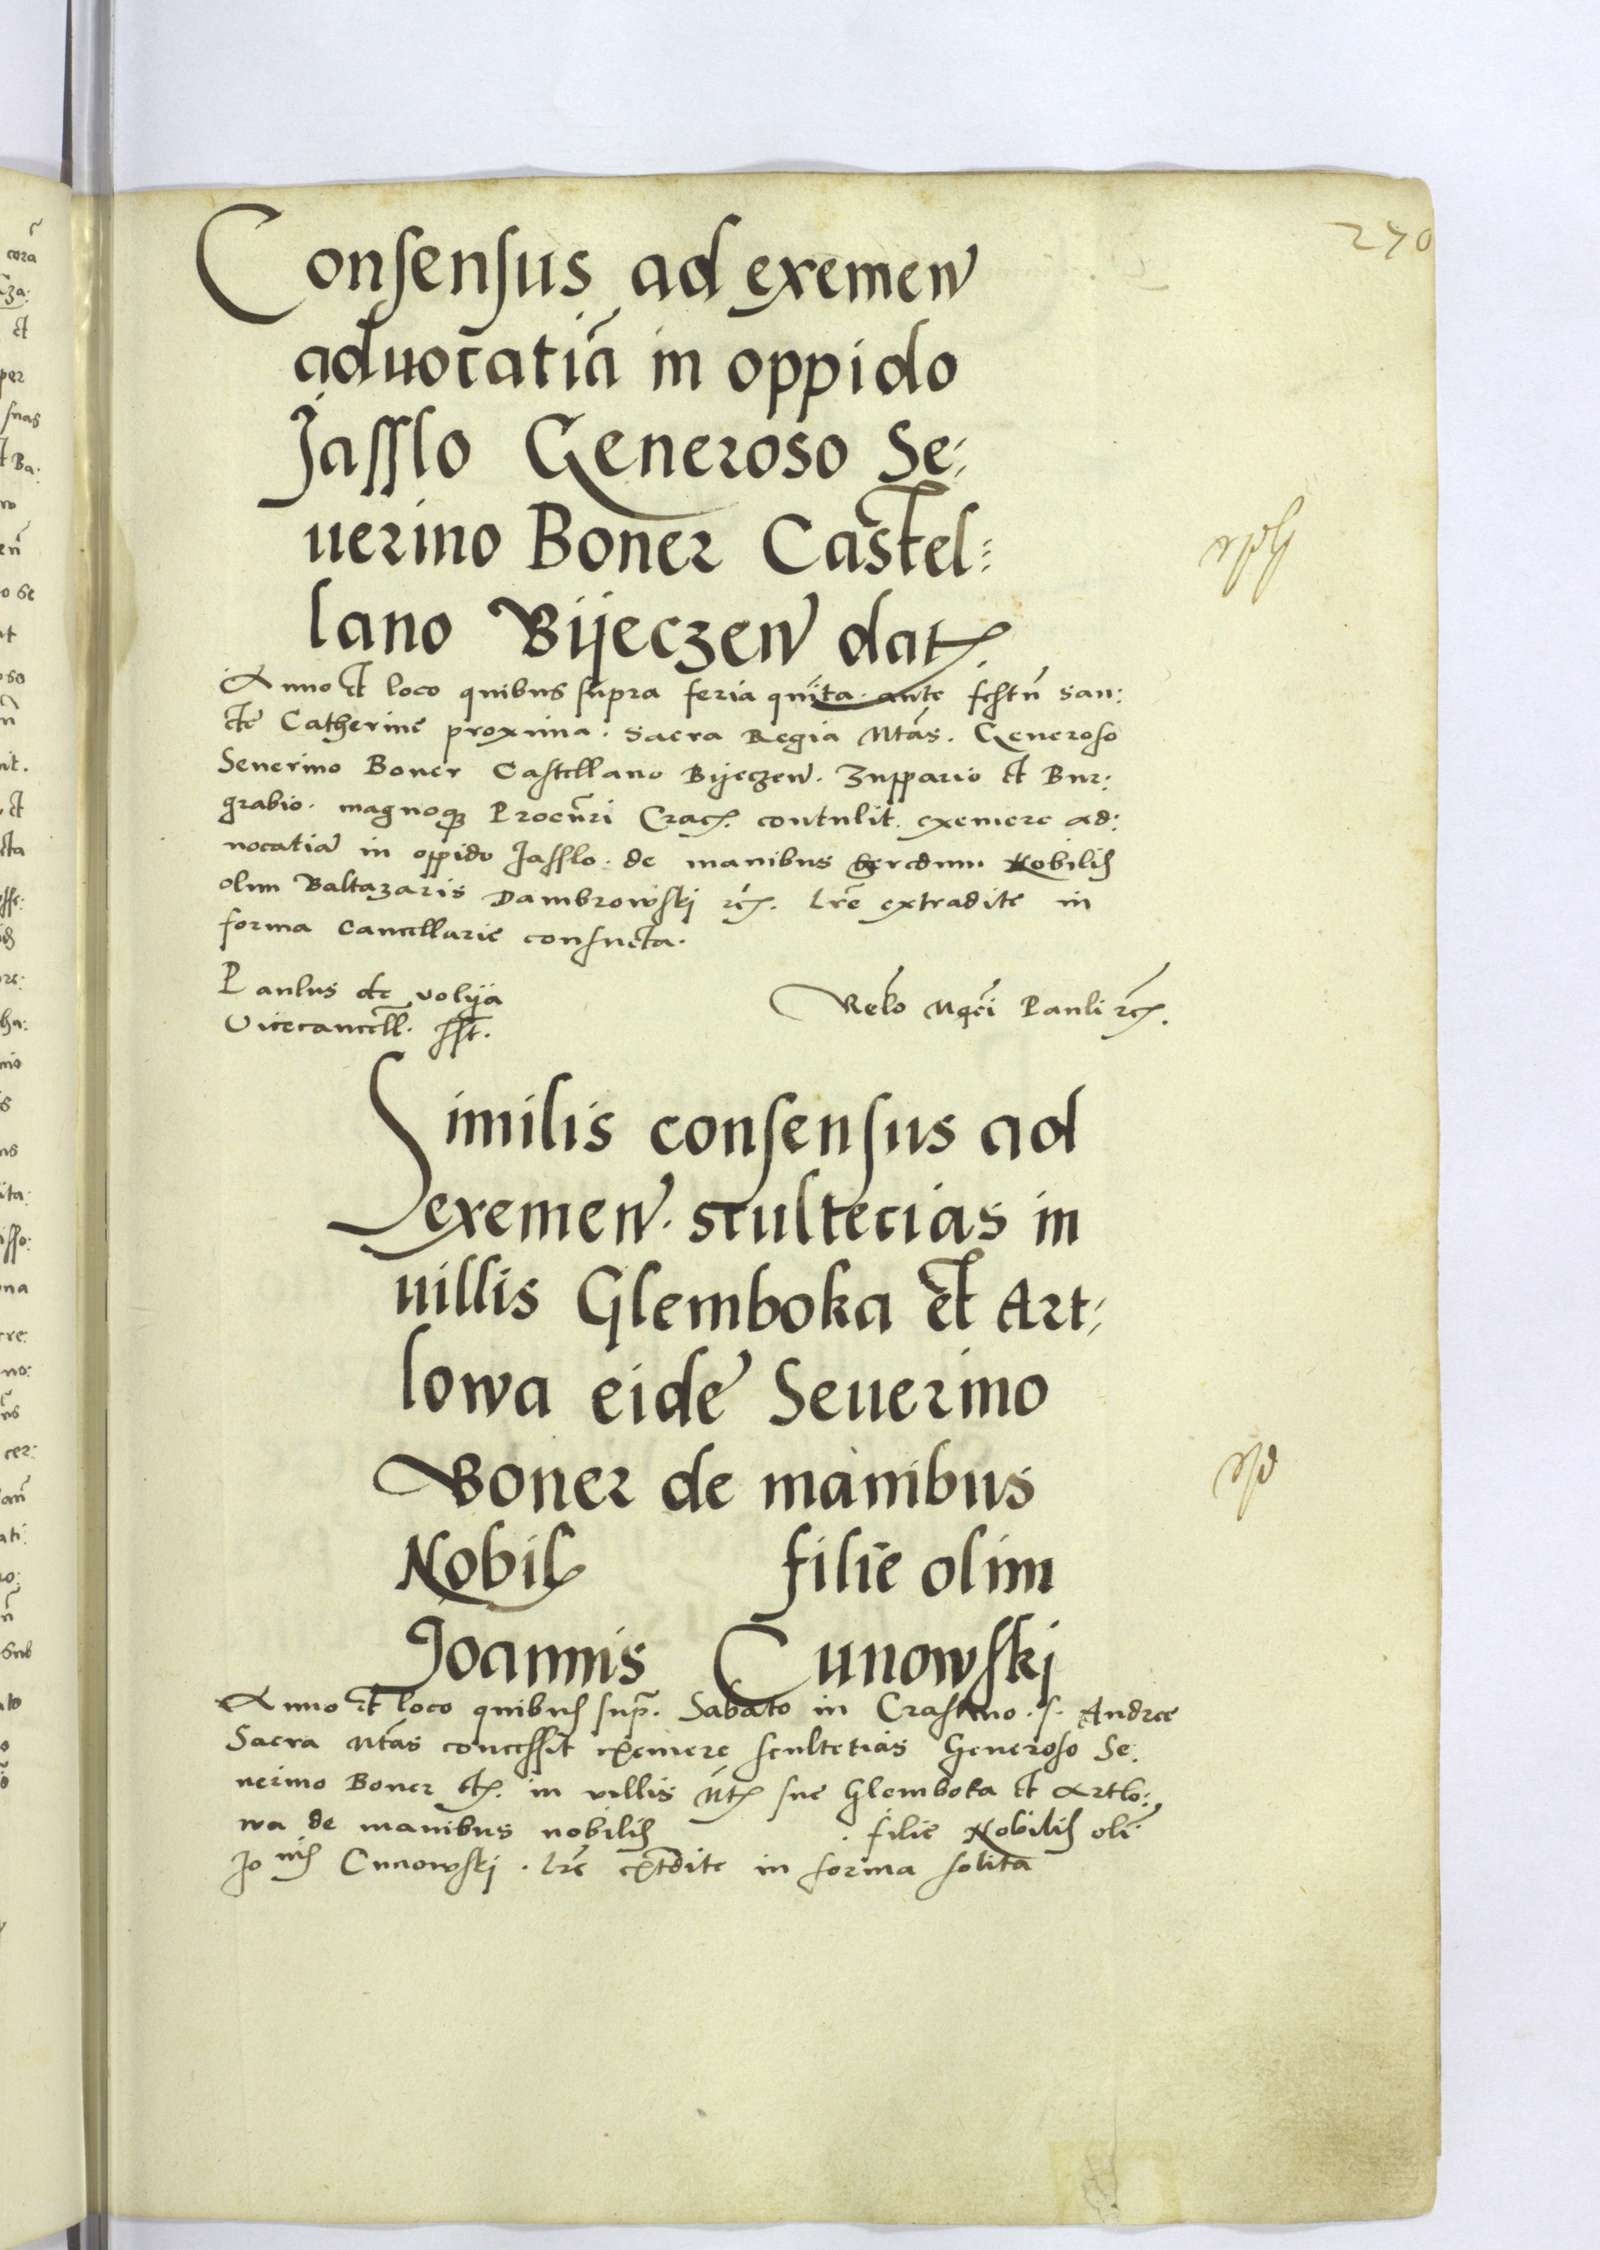 270
Consensus ad exemen̄
aduocatiā in oppido
Jasslo Generoso Se⸗
uerino Boner Castel⸗
lano Bijeczen̄ dat.
Anno et loco quibus supra feria quīta ante festū san:
cte Catherine proxima. Sacra Regia Mtās. Generoso
Seuerino Boner Castellano Bijeczen̄. Zuppario et Bur:
grabio. magnoq; Procūri Crac. contulit. exemere ad:
uocatiā in oppido Jasslo. de manibus heredum Nobilis
olim Baltazaris Dambrowskj rc̄. Lr̄e extradite in
forma Cancellarie consueta.
Paulus de volÿa
Vicecancell. sst.
Relō Mgcī Pauli rc̄.
Similis consensus ad
exemen̄. scultecias in
uillis Glemboka et Art⸗
lowa eidē Seuerino
Boner de manibus
Nobil filie olim
Joannis Cunowskj
Anno et loco quibus sup̄. Sabato in Crastino. s. Andree
Sacra Mtās concessit exemere scultetias Generoso Se:
uerino Boner etc. in villis Mt̄. sue Glemboka et Artlo:
wa de manibus nobilis . filie Nobilis olī
Jonis Cunowskj. Lr̄e extdite in forma solita